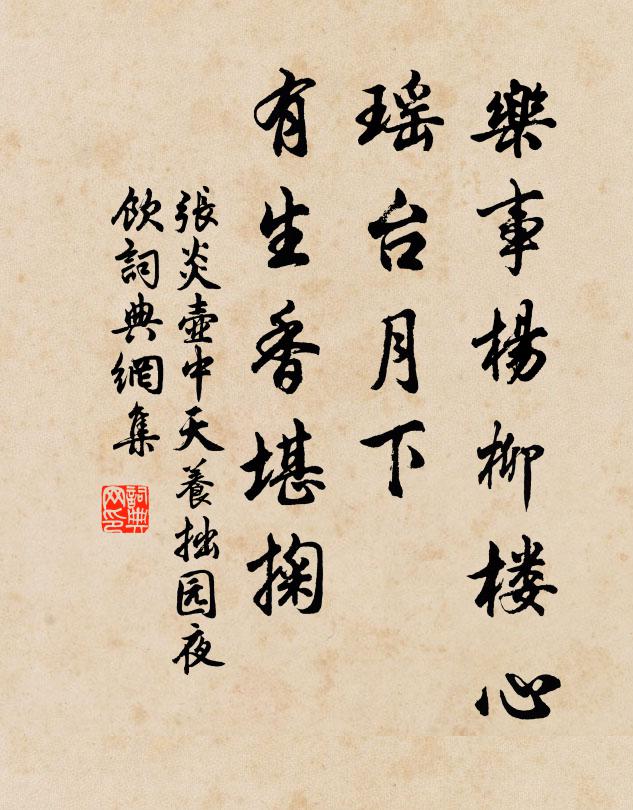 樂事楊柳楼心
瑶台月下
有生香堪掬
張炎壺中天養拙园夜
飲詞典網集
詞典
网印